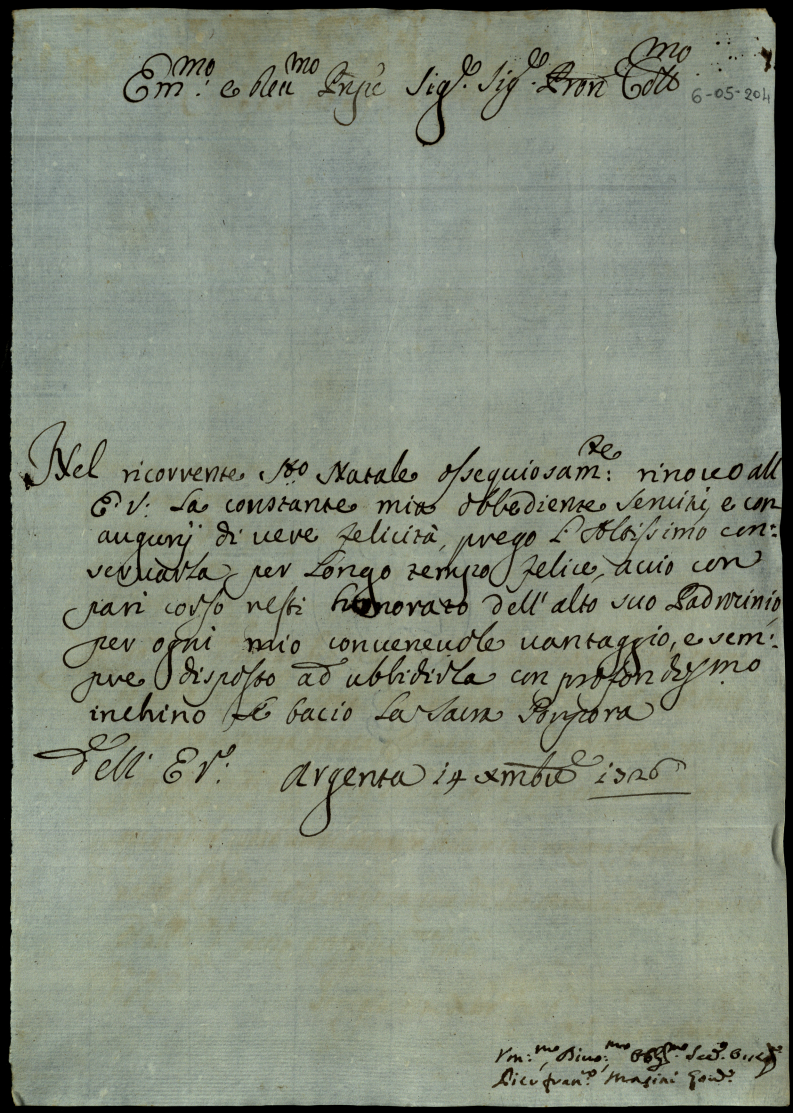 Em:mo e Reu:mo Pn̄pe Sig.re Sig.re Pron̄ Coll:mo
6-05-204
Nel ricorrente S:to Natale ossequiosam:te rinouo all
E.V: la constante mia obbediente Seruitù, e con
augurij di uere felicità, prego L'Altissimo con:
seruarla per Longo tempo felice, acciò con
pari corso resti honorato dell'alto suo Padrocinio
per ogni mio conueneuole uantaggio, e sem:
pre disposto ad ubbidirla con profondiss.mo
inchino Le bacio La Sacra Porpora
Dell' E.V.: Argenta 14 Xmbre 1726
Deuo:mo Obb:mo Seru.re
Pier Fran.co Masini Gou.re